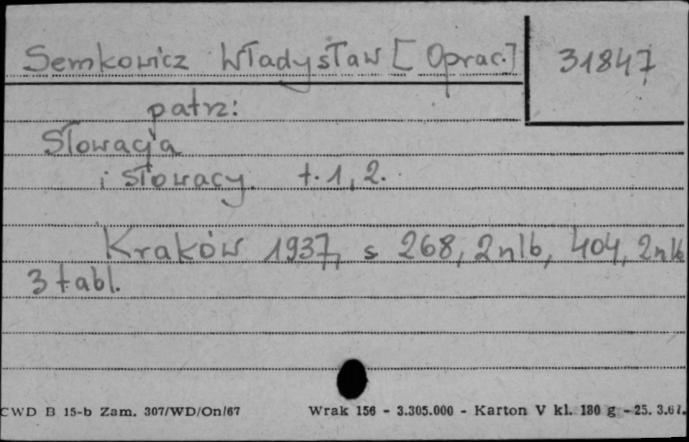 Semkowicz Władysław [Oprac.] 31847
patrz:
Słowacja
i Słowacy. t. 1, 2.
Kraków 1937, s 268, 2nlb, 404, 2nlb
3 tabl.
CWD B 15-b Zam. 307/WD/On/67 Wrak 156 - 3.305.000 - Karton V kl. 180 g - 25. 3.67.